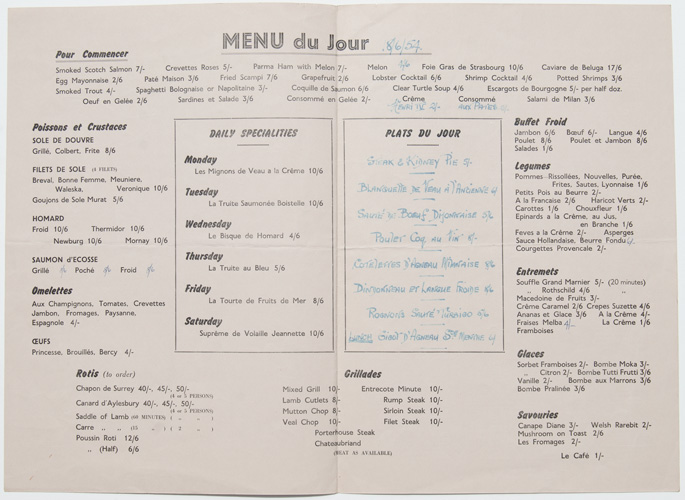 MENU du Jour 8/6/57.
Pour Commencer
Smoked Scotch Salmon 7/- Crevettes Roses 5/- Parma Ham with Melon 7/- Melon Foie Gras de Strasbourg 10/6 Caviare de Beluga 17/6
Egg Mayonnaise 2/6 Paté Maison 3/6 Fried Scampi 7/6 Grapefruit 2/6 Lobster Cocktail 6/6 Shrimp Cocktail 4/6 Potted Shrimps 3/6
Smoked Trout 4/- Spaghetti Bolognaise or Napolitaine 3/- Coquille de Saumon 6/6 Clear Turtle Soup 4/6 Escargots de Bourgogne 5/- per half doz.
Oeuf en Gelée 2/6 Sardines et Salade 3/6 Consommé en Gelée 2/- Crême Consommé Salami de Milan 3/6
Poissons et Crustaces
SOLE DE DOUVRE
Grillé, Colbert, Frite 8/6
FILETS DE SOLE (4 FILETS)
Breval, Bonne Femme, Meuniere,
Waleska, Veronique 10/6
Goujons de Sole Murat 5/6
HOMARD
Froid 10/6 Thermidor 10/6
Newburg 10/6 Mornay 10/6
SAUMON d'ECOSSE
Grillé Poché Froid
Omelettes
Aux Champignons, Tomates, Crevettes
Jambon, Fromages, Paysanne,
Espagnole 4/-
ŒUFS
Princesse, Brouillés, Bercy 4/-
DAILY SPECIALITIES
Monday
Les Mignons de Veau a la Crême 10/6
Tuesday
La Truite Saumonée Boistelle 10/6
Wednesday
Le Bisque de Homard 4/6
Thursday
La Truite au Bleu 5/6
Friday
La Tourte de Fruits de Mer 8/6
Saturday
Suprême de Volaille Jeannette 10/6
PLATS DU JOUR
STEAK & KIDNEY PIE 5/-
BLANQUETTE DE VEAU A L'ANCIENNE
SAUTÉ DE BŒUF DIJONNAISE
POULET COQ AU VIN
COTELETTES D'AGNEAU MILANAISE
DINDONNEAU ET LANGUE FROIDE
ROGNONS SAUTÉ TURBIGO
GIGOT D'AGNEAU
Buffet Froid
Jambon 6/6 Bœuf 6/- Langue 4/6
Poulet 8/6 Poulet et Jambon 8/6
Salades 1/6
Legumes
Pommes-Rissollées, Nouvelles, Purée,
Frites, Sautes, Lyonnaise 1/6
Petits Pois au Beurre 2/-
A la Francaise 2/6 Haricot Verts 2/-
Carottes 1/6 Chouxfleur 1/6
Epinards a la Crême, au Jus,
en Branche 1/6
Feves a la Crême 2/- Asperges
Sauce Hollandaise, Beurre Fondu
Courgettes Provencale 2/-
Entremets
Souffle Grand Marnier 5/- (20 minutes)
„ Rothschild 4/6 Asperges „
Macedoine de Fruits 3/-
Crême Caramel 2/6 Crepes Suzette 4/6
Ananas et Glace 3/6 A la Crême 4/-
Fraises Melba La Crême 1/6
Framboises
Glaces
Sorbet Framboises 2/- Bombe Moka 3/-
„ Citron 2/- Bombe Tutti Frutti 3/6
Vanille 2/- Bombe aux Marrons 3/6
Bombe Pralinée 3/6
Savouries
Canape Diane 3/- Welsh Rarebit 2/-
Mushroom on Toast 2/6
Les Fromages 2/-
Le Café 1/-
Rotis (to order)
Chapon de Surrey 40/-, 45/-, 50/-
(4 or 5 PERSONS)
Canard d'Aylesbury 40/-, 45/-, 50/-
(4 or 5 PERSONS)
Saddle of Lamb (60 MINUTES) ( „ „ )
Carre „ (15 „ ) ( 2 „ )
Poussin Roti 12/6
„ (Half) 6/6
Grillades
Mixed Grill 10/- Entrecote Minute 10/-
Lamb Cutlets 8/- Rump Steak 10/-
Mutton Chop 8/- Sirloin Steak 10/-
Veal Chop 10/- Filet Steak 10/-
Porterhouse Steak
Chateaubriand
(MEAT AS AVAILABLE)